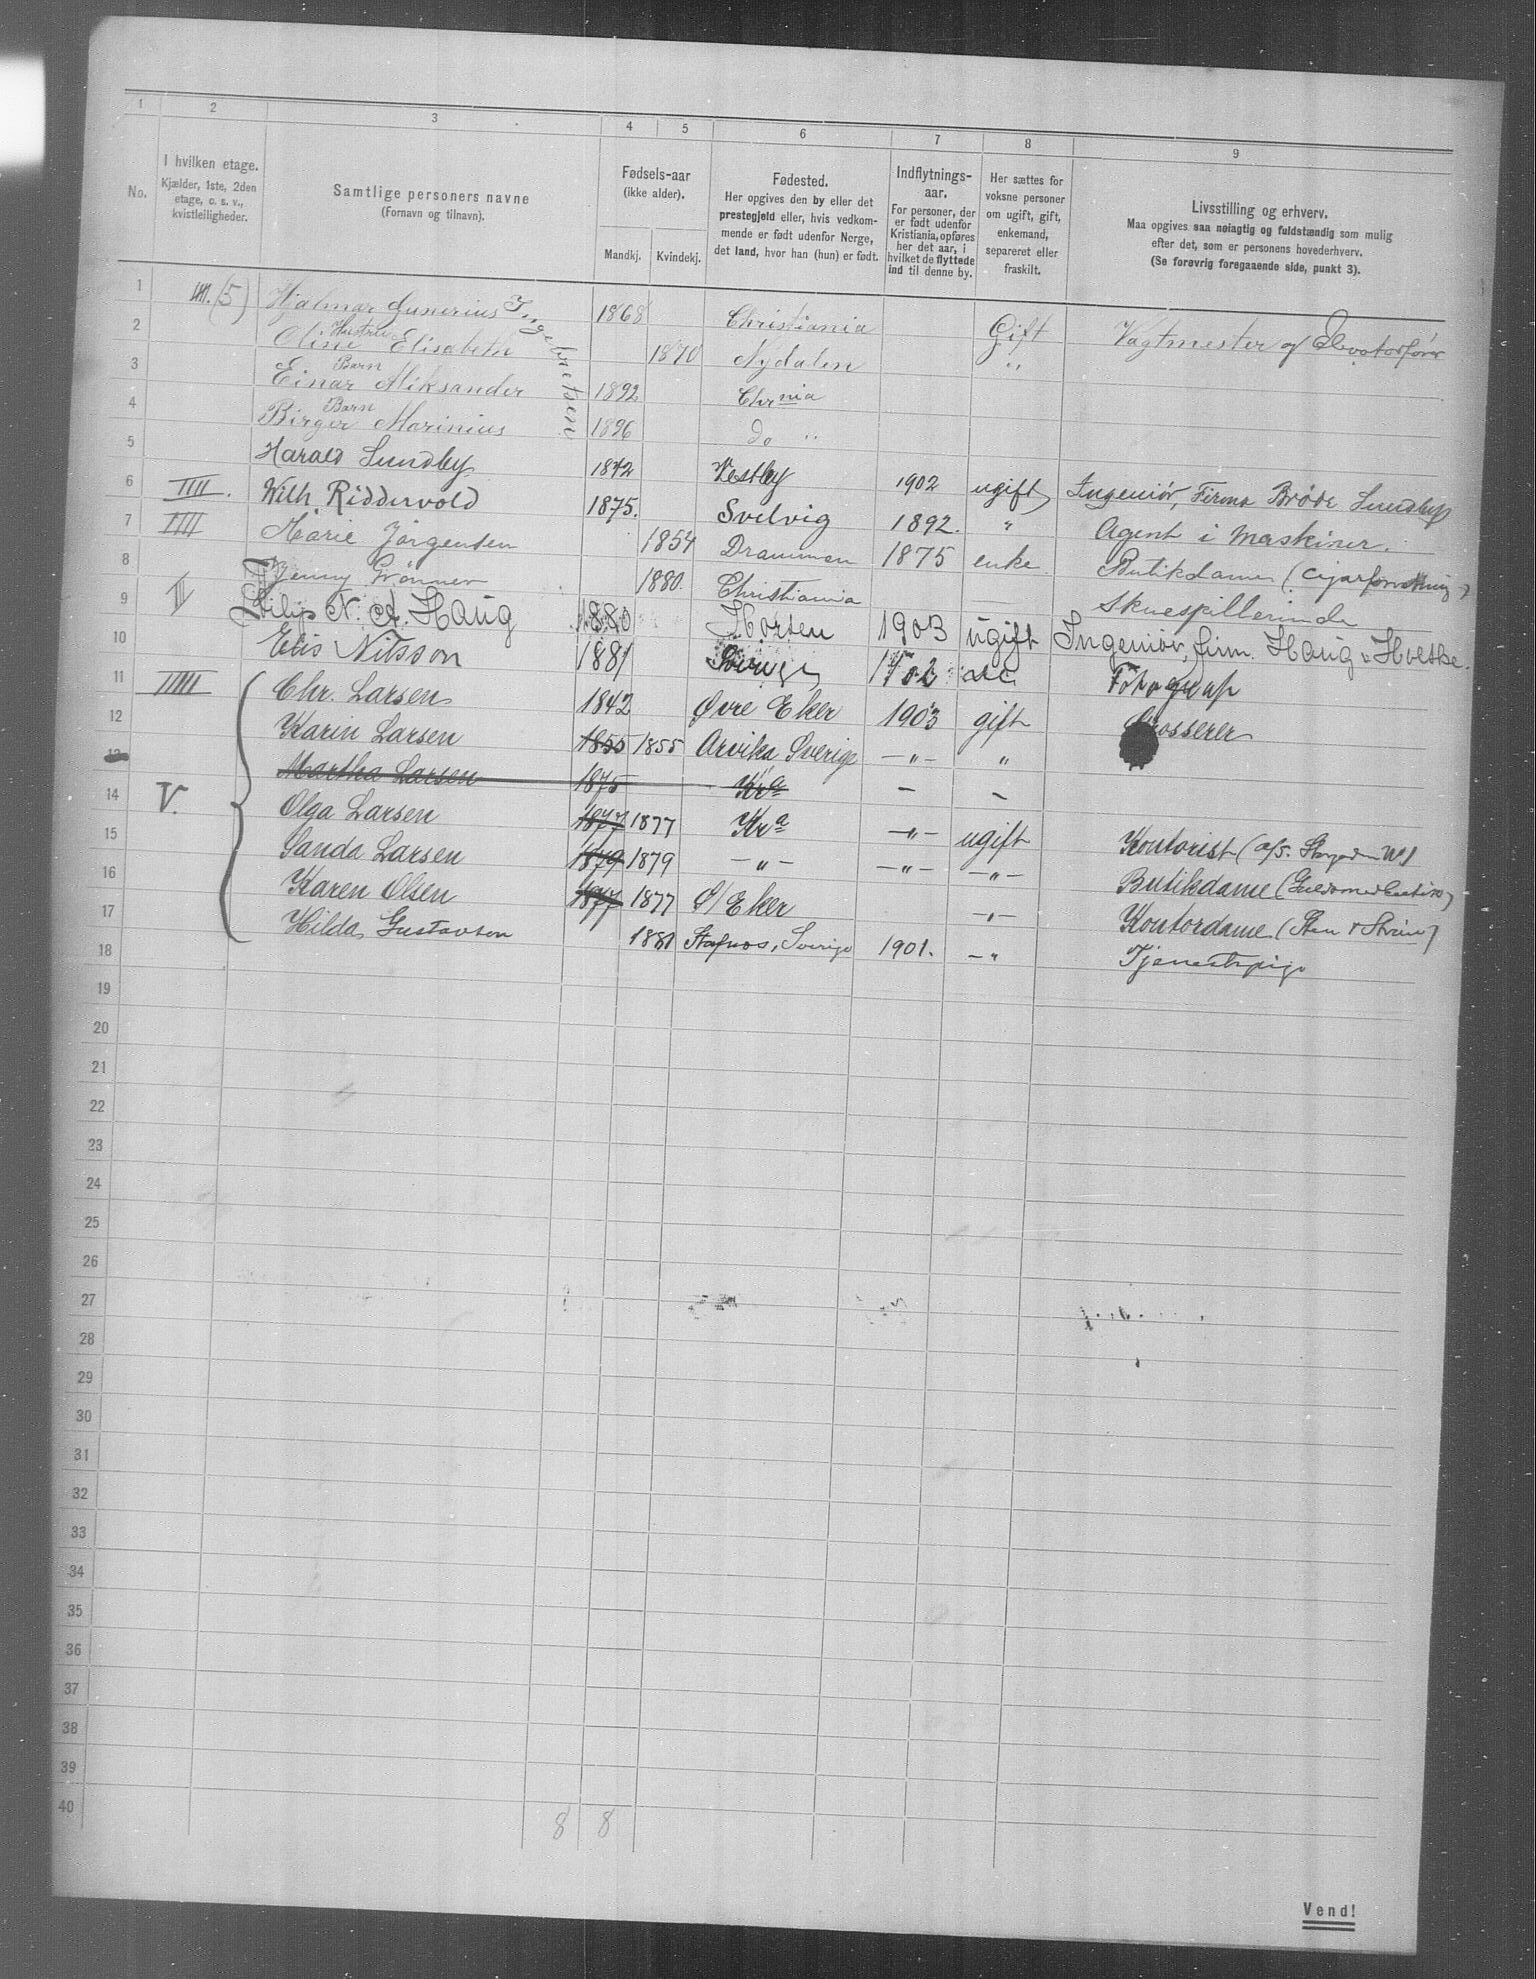 1 2 3 4 5 6 7 8 9
No.
I hvilken etage.
Kjælder, 1ste, 2den
etage, o. s. v.,
kvistleiligheder.
Samtlige personers navne
(Fornavn og tilnavn).
Fødsels-aar
(ikke alder).
Mandkj. Kvindekj.
Fødested.
Her opgives den by eller det
prestegjeld eller, hvis vedkom-
mende er født udenfor Norge,
det land, hvor han (hun) er født.
Indflytnings-
aar.
For personer, der
er født udenfor
Kristiania, opføres
her det aar, i
hvilket de flyttede
ind til denne by.
Her sættes for
voksne personer
om ugift, gift,
enkemand,
separeret eller
fraskilt.
Livsstilling og erhverv.
Maa opgives saa nøiagtig og fuldstændig som mulig
efter det, som er personens hovederhverv.
(Se forøvrig foregaaende side, punkt 3).
1 III. (5) Hjalmar Gunerius Ingebretsen 1868 Christiania Gift Vagtmester og Elevatorfører
2 Hustru
Oline Elisabeth 1870 Nydalen "
3 Barn
Einar Aliksander 1892 Chr nia
4 Barn
Birger Marinius 1896 do "
5 Harald Lundby 1872 Vestby 1902 ugift Ingeniør, Firma Brødr. Lundby
6 IIII. Wilh. Riddervold 1875. Svelvig 1892. " Agent i maskiner.
7 IIII Marie Jørgensen 1854 Drammen 1875 enke Butikdame (cigarforretning)
8 Jenny Grønner 1880. Christiania Skuespillerinde
9 II Filip N. A. Haug 1880 Horten 1903 ugift Ingeniør, firm. Haug & Holtke.
10 Elis Nilsson 1881 Sverige 1902 do Fotograf
11 IIIII Chr. Larsen 1842 Øvre Eker 1903 gift Grosserer
12 Karin Larsen 1855 1855 Arvika Sverige — " — "
13 Martha Larsen 1875 Kra — —
14 V. Olga Larsen 1877 1877 Kra — " — ugift Kontorist (a/s.
15 Sanda Larsen 1879 1879 — " — — " — — " — Butikdame
16 Karen Olsen 1877 1877 Ø/Eker — " — Kontordame (Sten & Strøm)
17 Hilda Gustavson 1881 Stafnos, Sverige 1901. — " Tjenestepige
18
19
20
21
22
23
24
25
26
27
28
29
30
31
32
33
34
35
36
37
38
39
40
8 8
Vend!